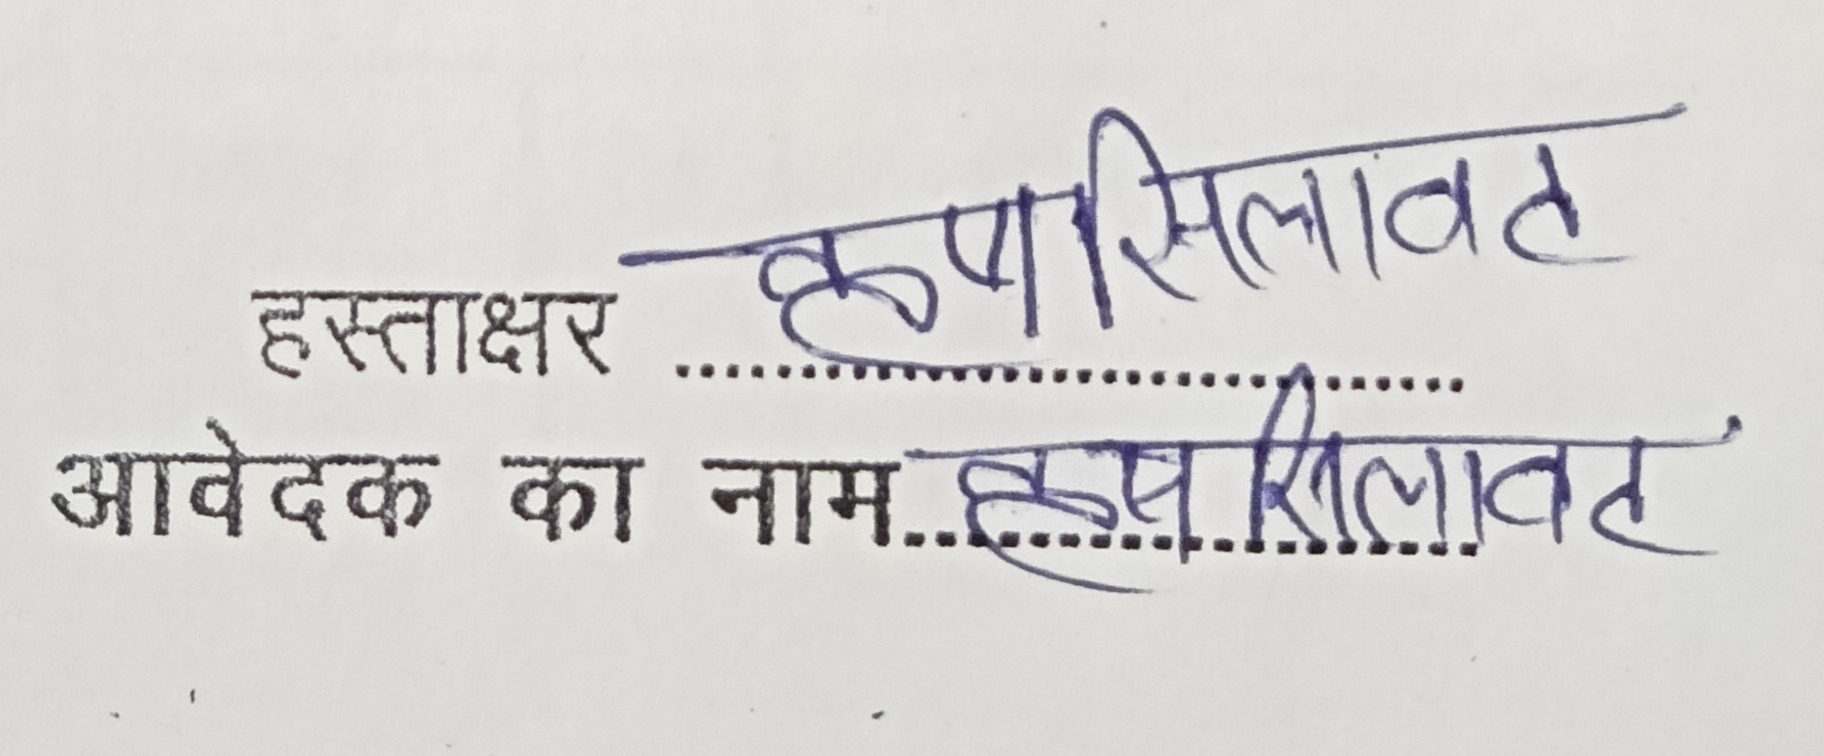 हस्ताक्षर सिलावट
आवेदक का नाम सिलावट